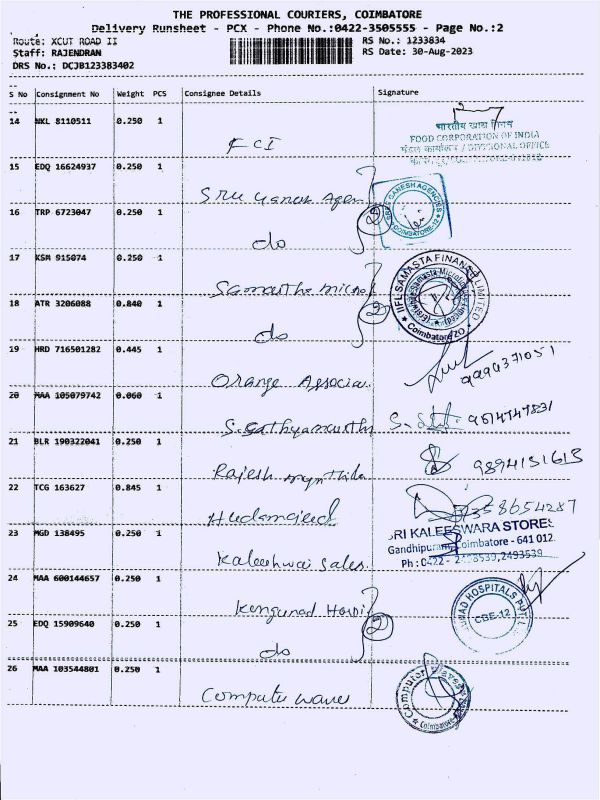 THE PROFESSIONAL COURIERS, COIMBATORE
Delivery Runsheet - PCX - Phone No.:0422-3505555 - Page No.:2
Route: XCUT ROAD II
RS No.: 1233834
Staff: RAJENDRAN
RS Date: 30-Aug-2023
DRS No.: DCJB123383402
S No Consignment No Weight PCS Consignee Details Signature
14 NKL 8110511 0.250 1
FCI
भारतीय खाद्य निगम
FOOD CORPORATION OF INDIA
मंडल कार्यालय / DIVISIONAL OFFICE
15 EDQ 16624937 0.250 1
Sree Ganesh Agen
SREE GANESH AGENCIES
* COIMBATORE-12 *
16 TRP 6723047 0.250 1
do
2
17 KSM 915074 0.250 1
Samastha micro
IIFL SAMASTA FINANCE LIMITED
* Coimbatore ZO *
18 ATR 3206088 0.840 1
do
2
19 HRD 716501282 0.445 1
Orange Associa.
9994371051
20 MAA 105079742 0.060 1
S. Sathyamurthi
21 BLR 190322041 0.250 1
Rajesh
9894151613
22 TCG 163627 0.845 1
358654287
23 MGD 138495 0.250 1
Kaleeshwari Sales.
SRI KALEESWARA STORES
Gandhipuram, Coimbatore - 641 012.
Ph : 0422 - 2493539
24 MAA 600144657 0.250 1
Kongunad Hospi
HOSPITALS PVT
CBE-12
25 EDQ 15909640 0.250 1
do
2
26 MAA 103544801 0.250 1
Compute waves
Computer Waves
* Coimbatore *